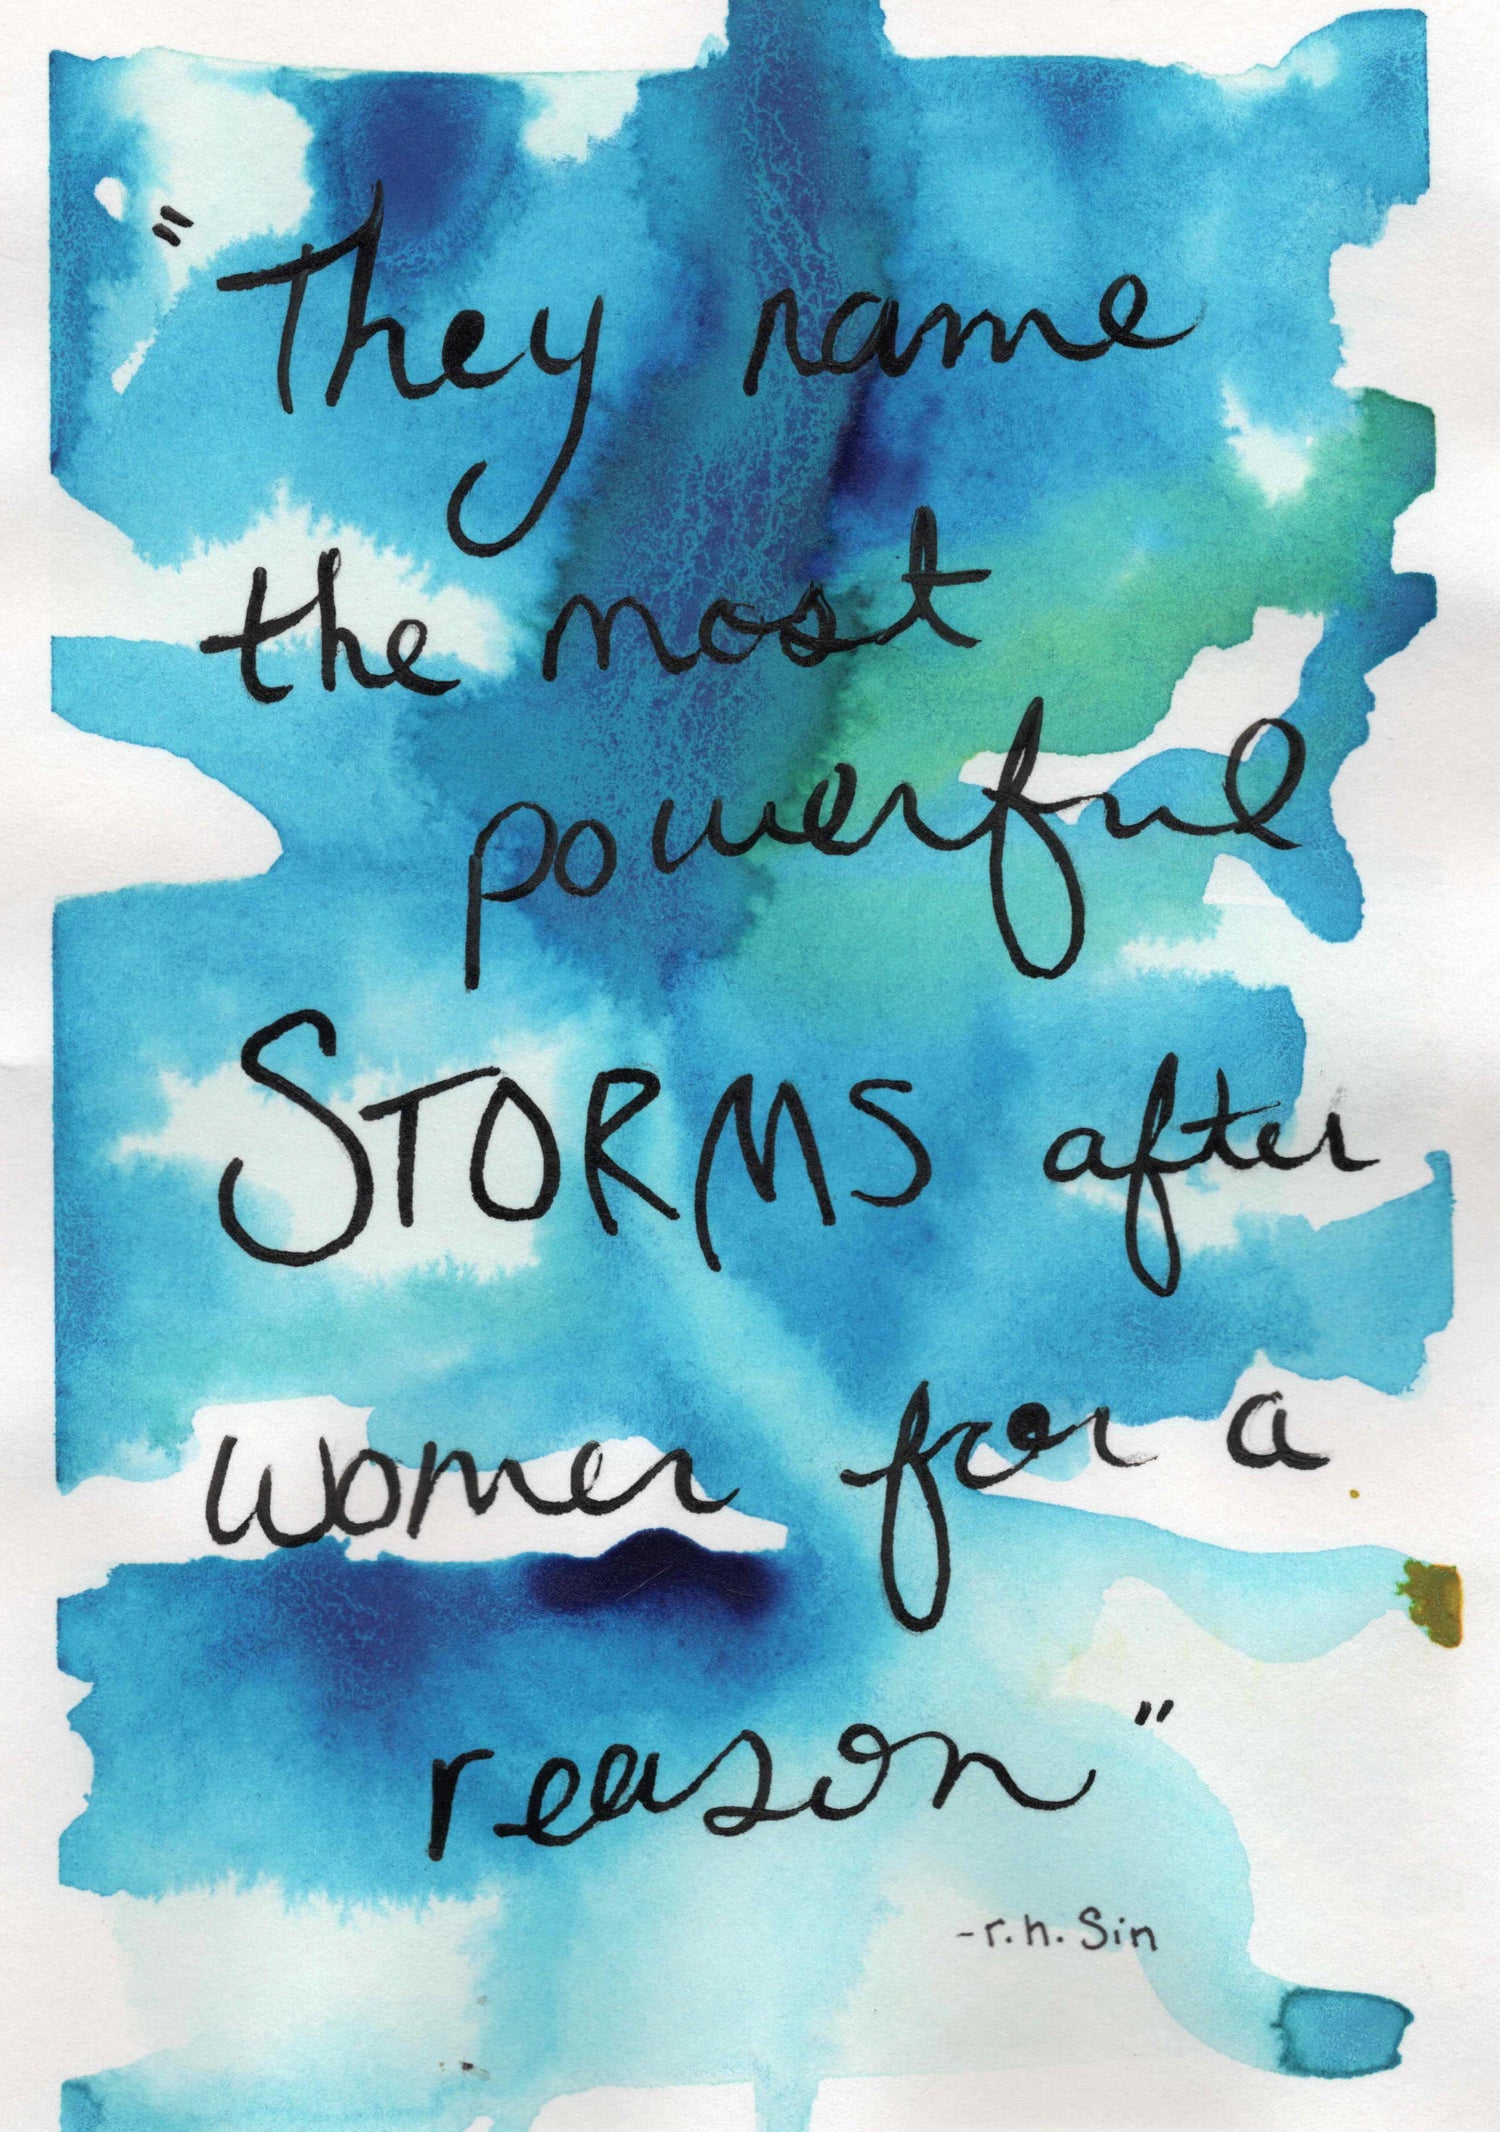 "They name
the most
powerful
STORMS after
women for a
reason"
-r.h. Sin